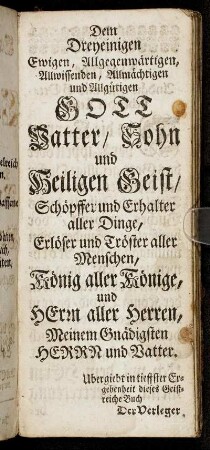 Dem
Dreyeinigen
Ewigen, Allgegenwärtigen,
Allwissenden, Allmächtigen
und Allgütigen
GOTT
Vatter/ Sohn
und
Heiligen Geist/
Schöpffer und Erhalter
aller Dinge,
Erlöser und Tröster aller
Menschen,
König aller Könige,
und
HErrn aller Herren,
Meinem Gnädigsten
HERRN und Vatter.
Ubergiebt in tieffster Er-
gebenheit dieses Geist-
reiche Buch
Der Verleger.